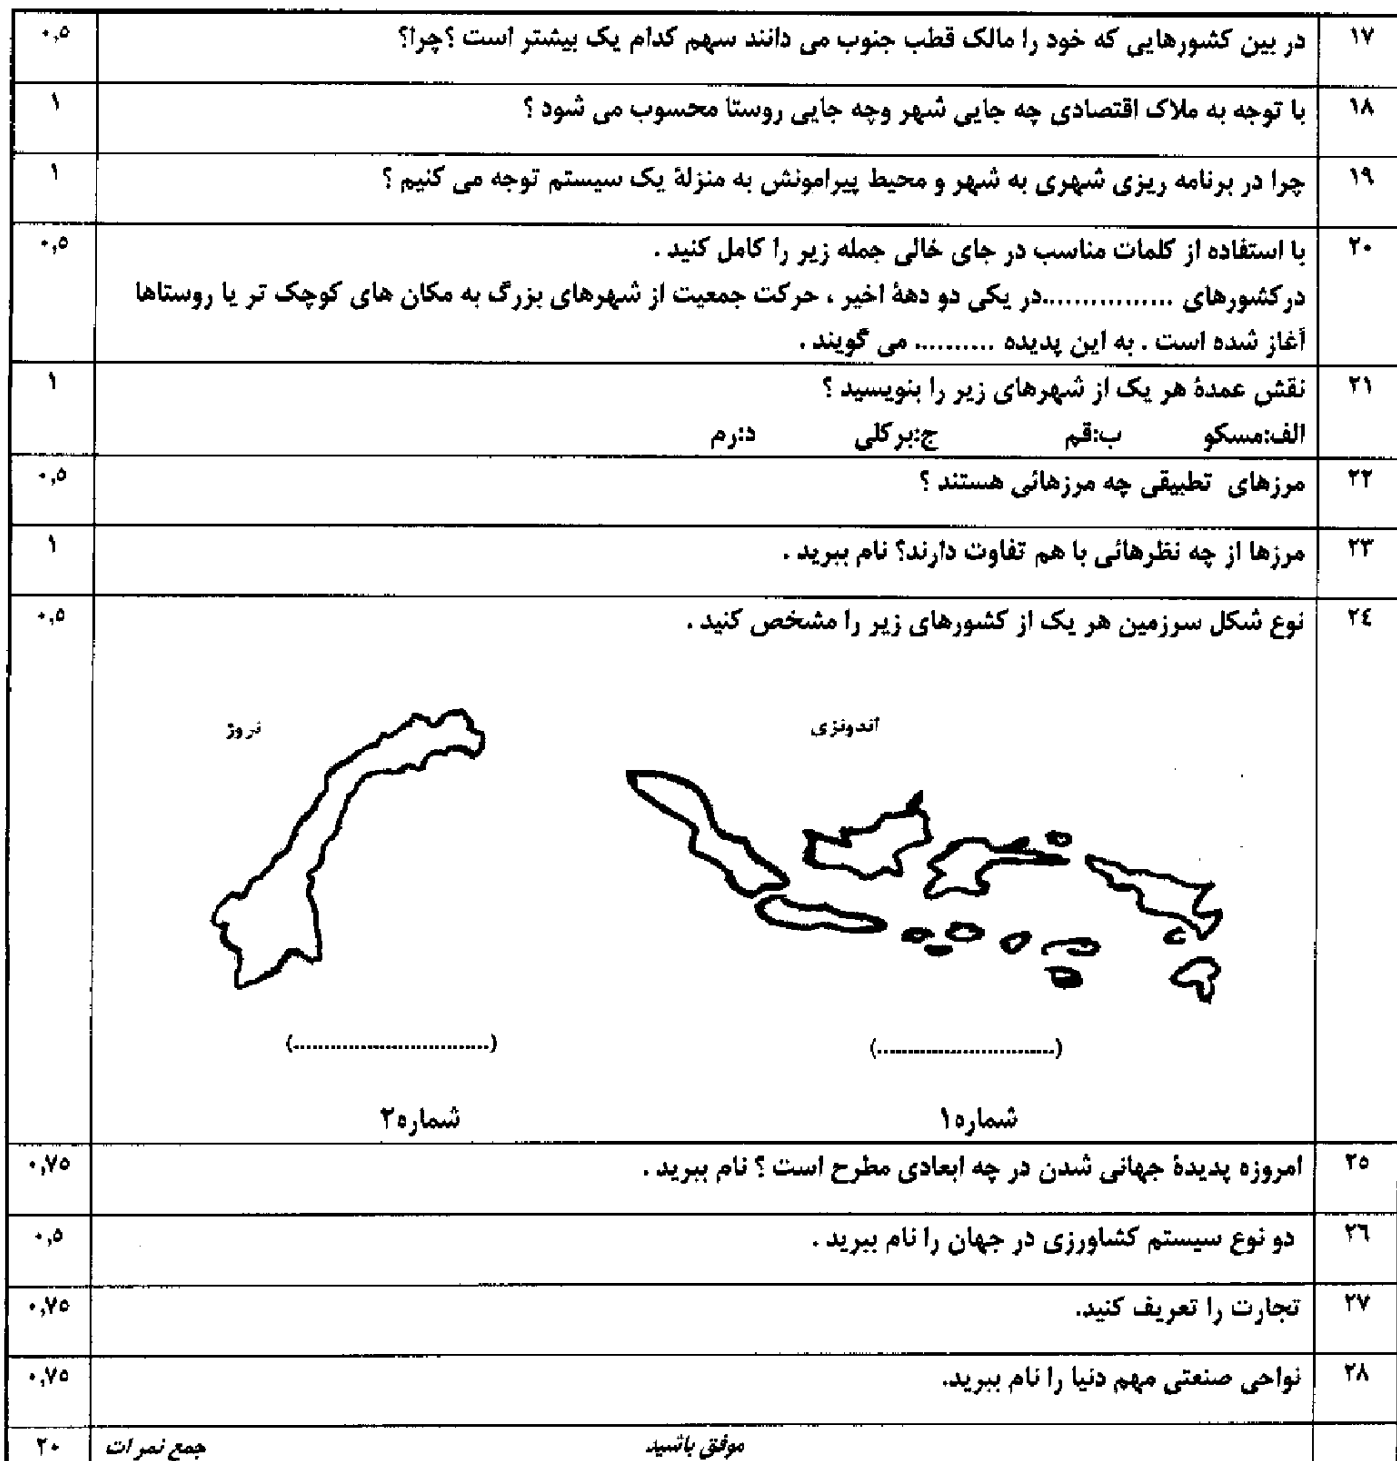 ۱۷ در بین کشورهایی که خود را مالک قطب جنوب می دانند سهم کدام یک بیشتر است ؟چرا؟ ۰,۵
۱۸ با توجه به ملاک اقتصادی چه جایی شهر وچه جایی روستا محسوب می شود ؟ ۱
۱۹ چرا در برنامه ریزی شهری به شهر و محیط پیرامونش به منزلهٔ یک سیستم توجه می کنیم ؟ ۱
۲۰ با استفاده از کلمات مناسب در جای خالی جمله زیر را کامل کنید . ۰,۵
درکشورهای ................در یکی دو دههٔ اخیر ، حرکت جمعیت از شهرهای بزرگ به مکان های کوچک تر یا روستاها
آغاز شده است . به این پدیده .......... می گویند .
۲۱ نقش عمدهٔ هر یک از شهرهای زیر را بنویسید ؟ ۱
الف:مسکو ب:قم ج:برکلی د:رم
۲۲ مرزهای تطبیقی چه مرزهائی هستند ؟ ۰,۵
۲۳ مرزها از چه نظرهائی با هم تفاوت دارند؟ نام ببرید . ۱
۲٤ نوع شکل سرزمین هر یک از کشورهای زیر را مشخص کنید . ۰,۵
اندونزی نروژ
(.............................) (................................)
شماره۱ شماره۲
۲۵ امروزه پدیدهٔ جهانی شدن در چه ابعادی مطرح است ؟ نام ببرید . ۰,۷۵
۲٦ دو نوع سیستم کشاورزی در جهان را نام ببرید . ۰,۵
۲۷ تجارت را تعریف کنید. ۰,۷۵
۲۸ نواحی صنعتی مهم دنیا را نام ببرید. ۰,۷۵
موفق باشید جمع نمرات ۲۰